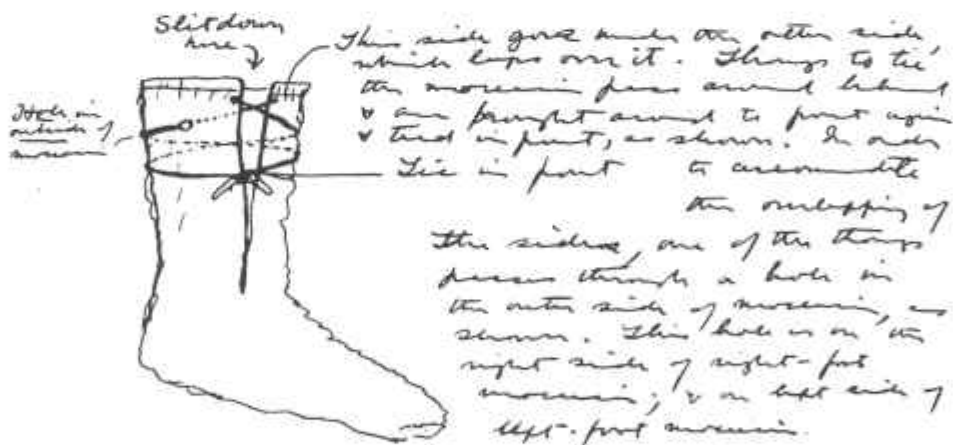 Slit down
here
This side goes under the outer side,
which laps over it. Thongs to tie
the moccasin pass around behind
& are brought around to front again
& tied in front, as shown. In order
Tie in front to accommodate
the overlapping of
the sides, one of the thongs
passes through a hole in
the outer side of moccasin, as
shown. This hole is on the
right side of right-foot
moccasin, & on left side of
left-foot moccasin.
Hole in
outside of
moccasin